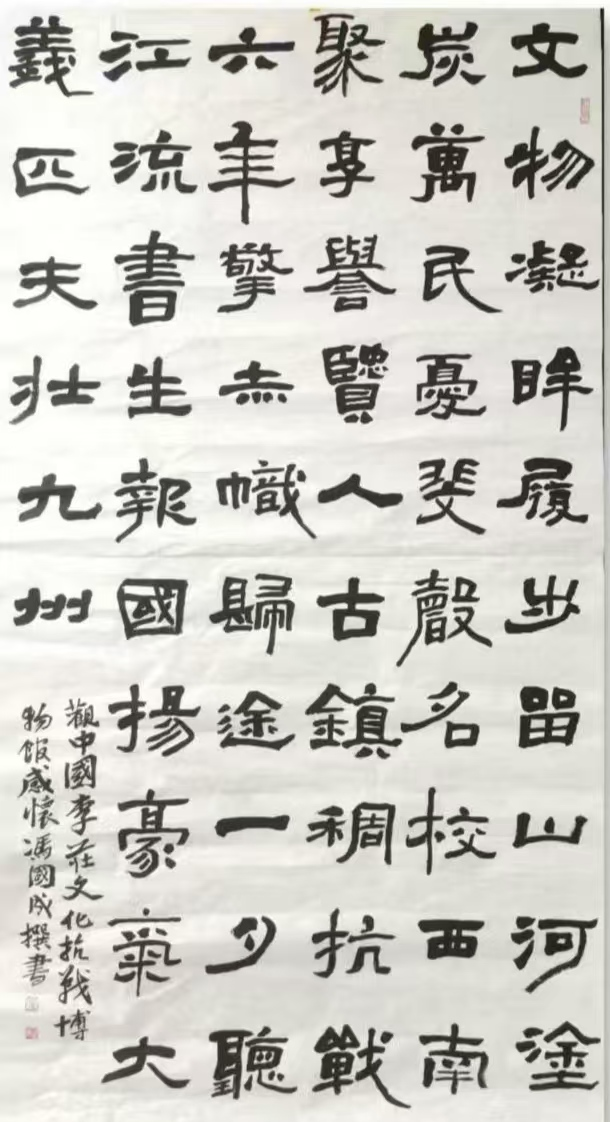 文物凝眸履步留山河塗
炭萬民憂斐聲名校西南
聚享譽賢人古鎮稠抗戰
六年擎赤幟歸途一夕聽
江流書生報國揚豪氣大
義匹夫壯九州
觀中國李莊文化抗戰博
物館感懷馮國成撰書